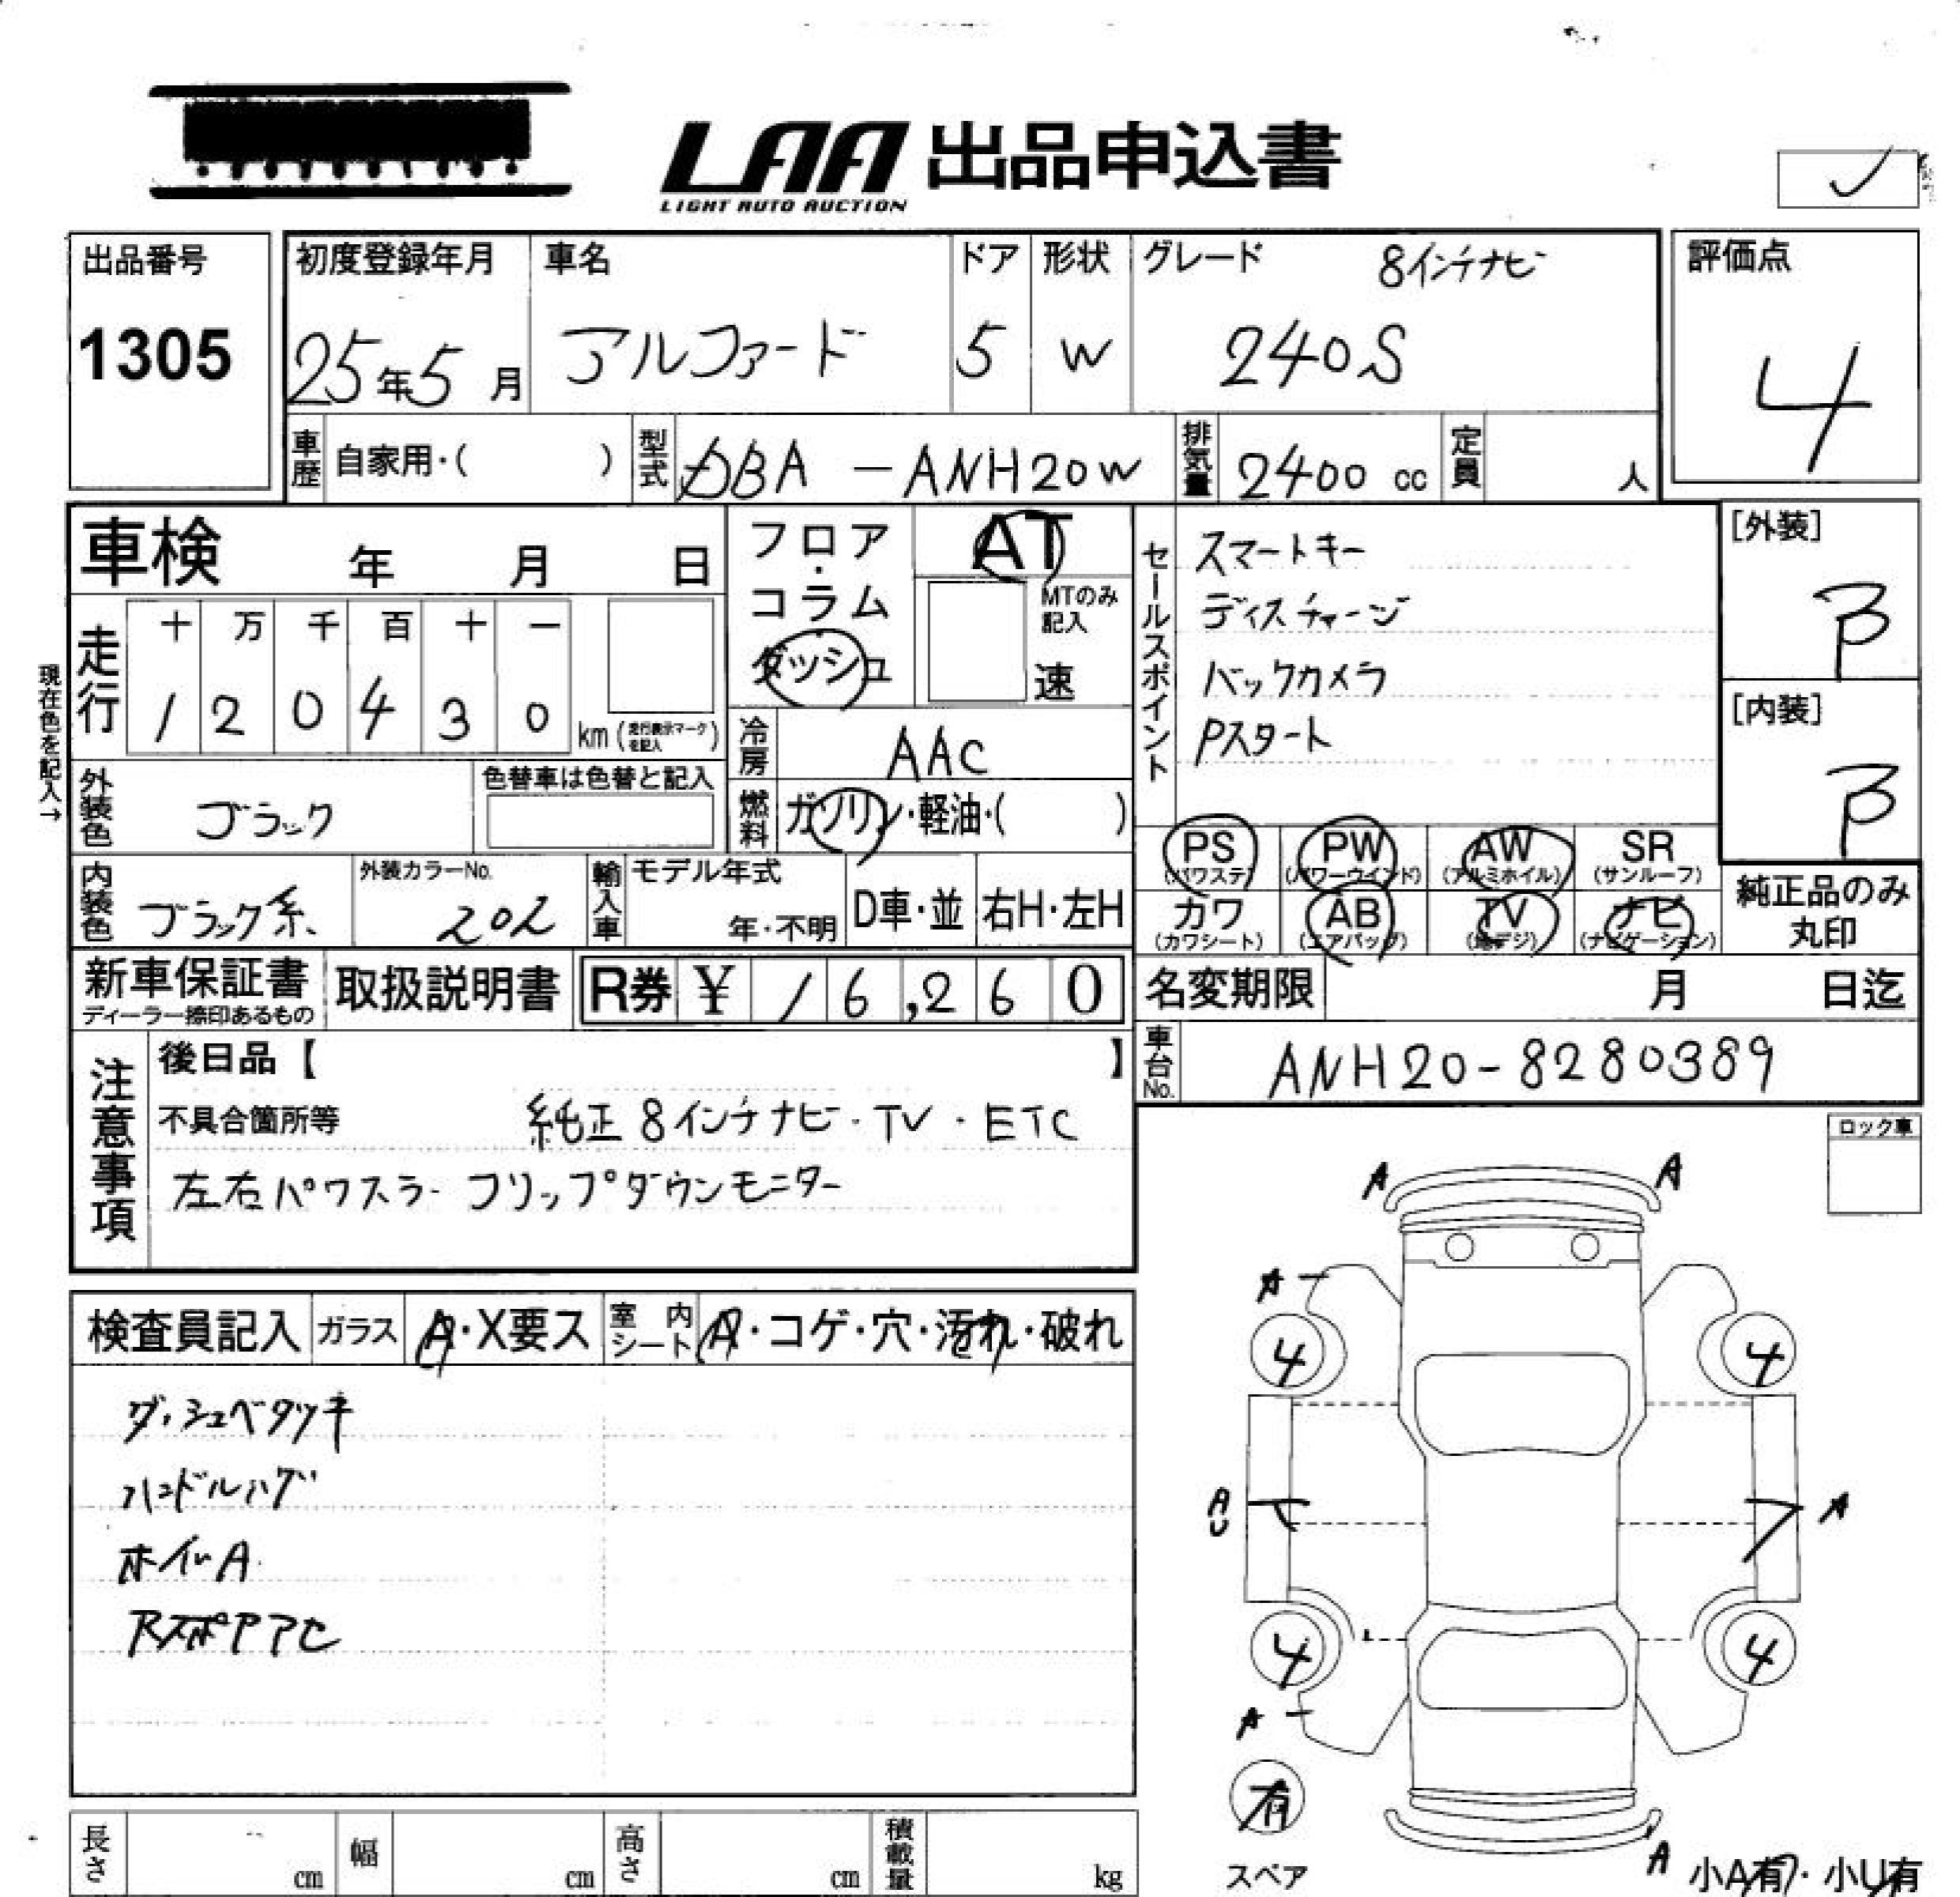 LAA 出品申込書
LIGHT AUTO AUCTION
出品番号
1305
初度登録年月
25年5月
車名
アルファード
ドア
5
形状
W
グレード
8インチナビ
240S
評価点
4
車歴
自家用・( )
型式
DBA - ANH20W
排気量
2400 cc
定員
人
現在色を記入→
車検 年 月 日
走行
十 万 千 百 十 一
1 2 0 4 3 0 km (走行表示マークを記入)
フロア・コラム
ダッシュ
AT
MTのみ記入
速
冷房
AAC
燃料
ガソリン・軽油・( )
外装色
ブラック
色替車は色替と記入
内装色
ブラック系
外装カラーNo.
202
輸入車
モデル年式
年・不明
D車・並
右H・左H
セールスポイント
スマートキー
ディスチャージ
バックカメラ
Pスタート
[外装]
B
[内装]
B
PS (パワステ)
PW (パワーウインド)
AW (アルミホイル)
SR (サンルーフ)
カワ (カワシート)
AB (エアバッグ)
TV (地デジ)
ナビ (ナビゲーション)
純正品のみ
丸印
新車保証書
ディーラー捺印あるもの
取扱説明書
R券 ¥ 16,260
名変期限 月 日迄
車台No.
ANH20-8280389
注意事項
後日品【 】
不具合箇所等 純正8インチナビ・TV・ETC
左右パワスラ フリップダウンモニター
ロック車
検査員記入
ガラス
A・X要ス
室内シート
A・コゲ・穴・汚れ・破れ
ダッシュベタツキ
ハンドルハゲ
ホイルA
A A
A
4 4
AU A
4 4
A
有
スペア
A
小A有・小U有
長さ cm
幅 cm
高さ cm
積載量 kg